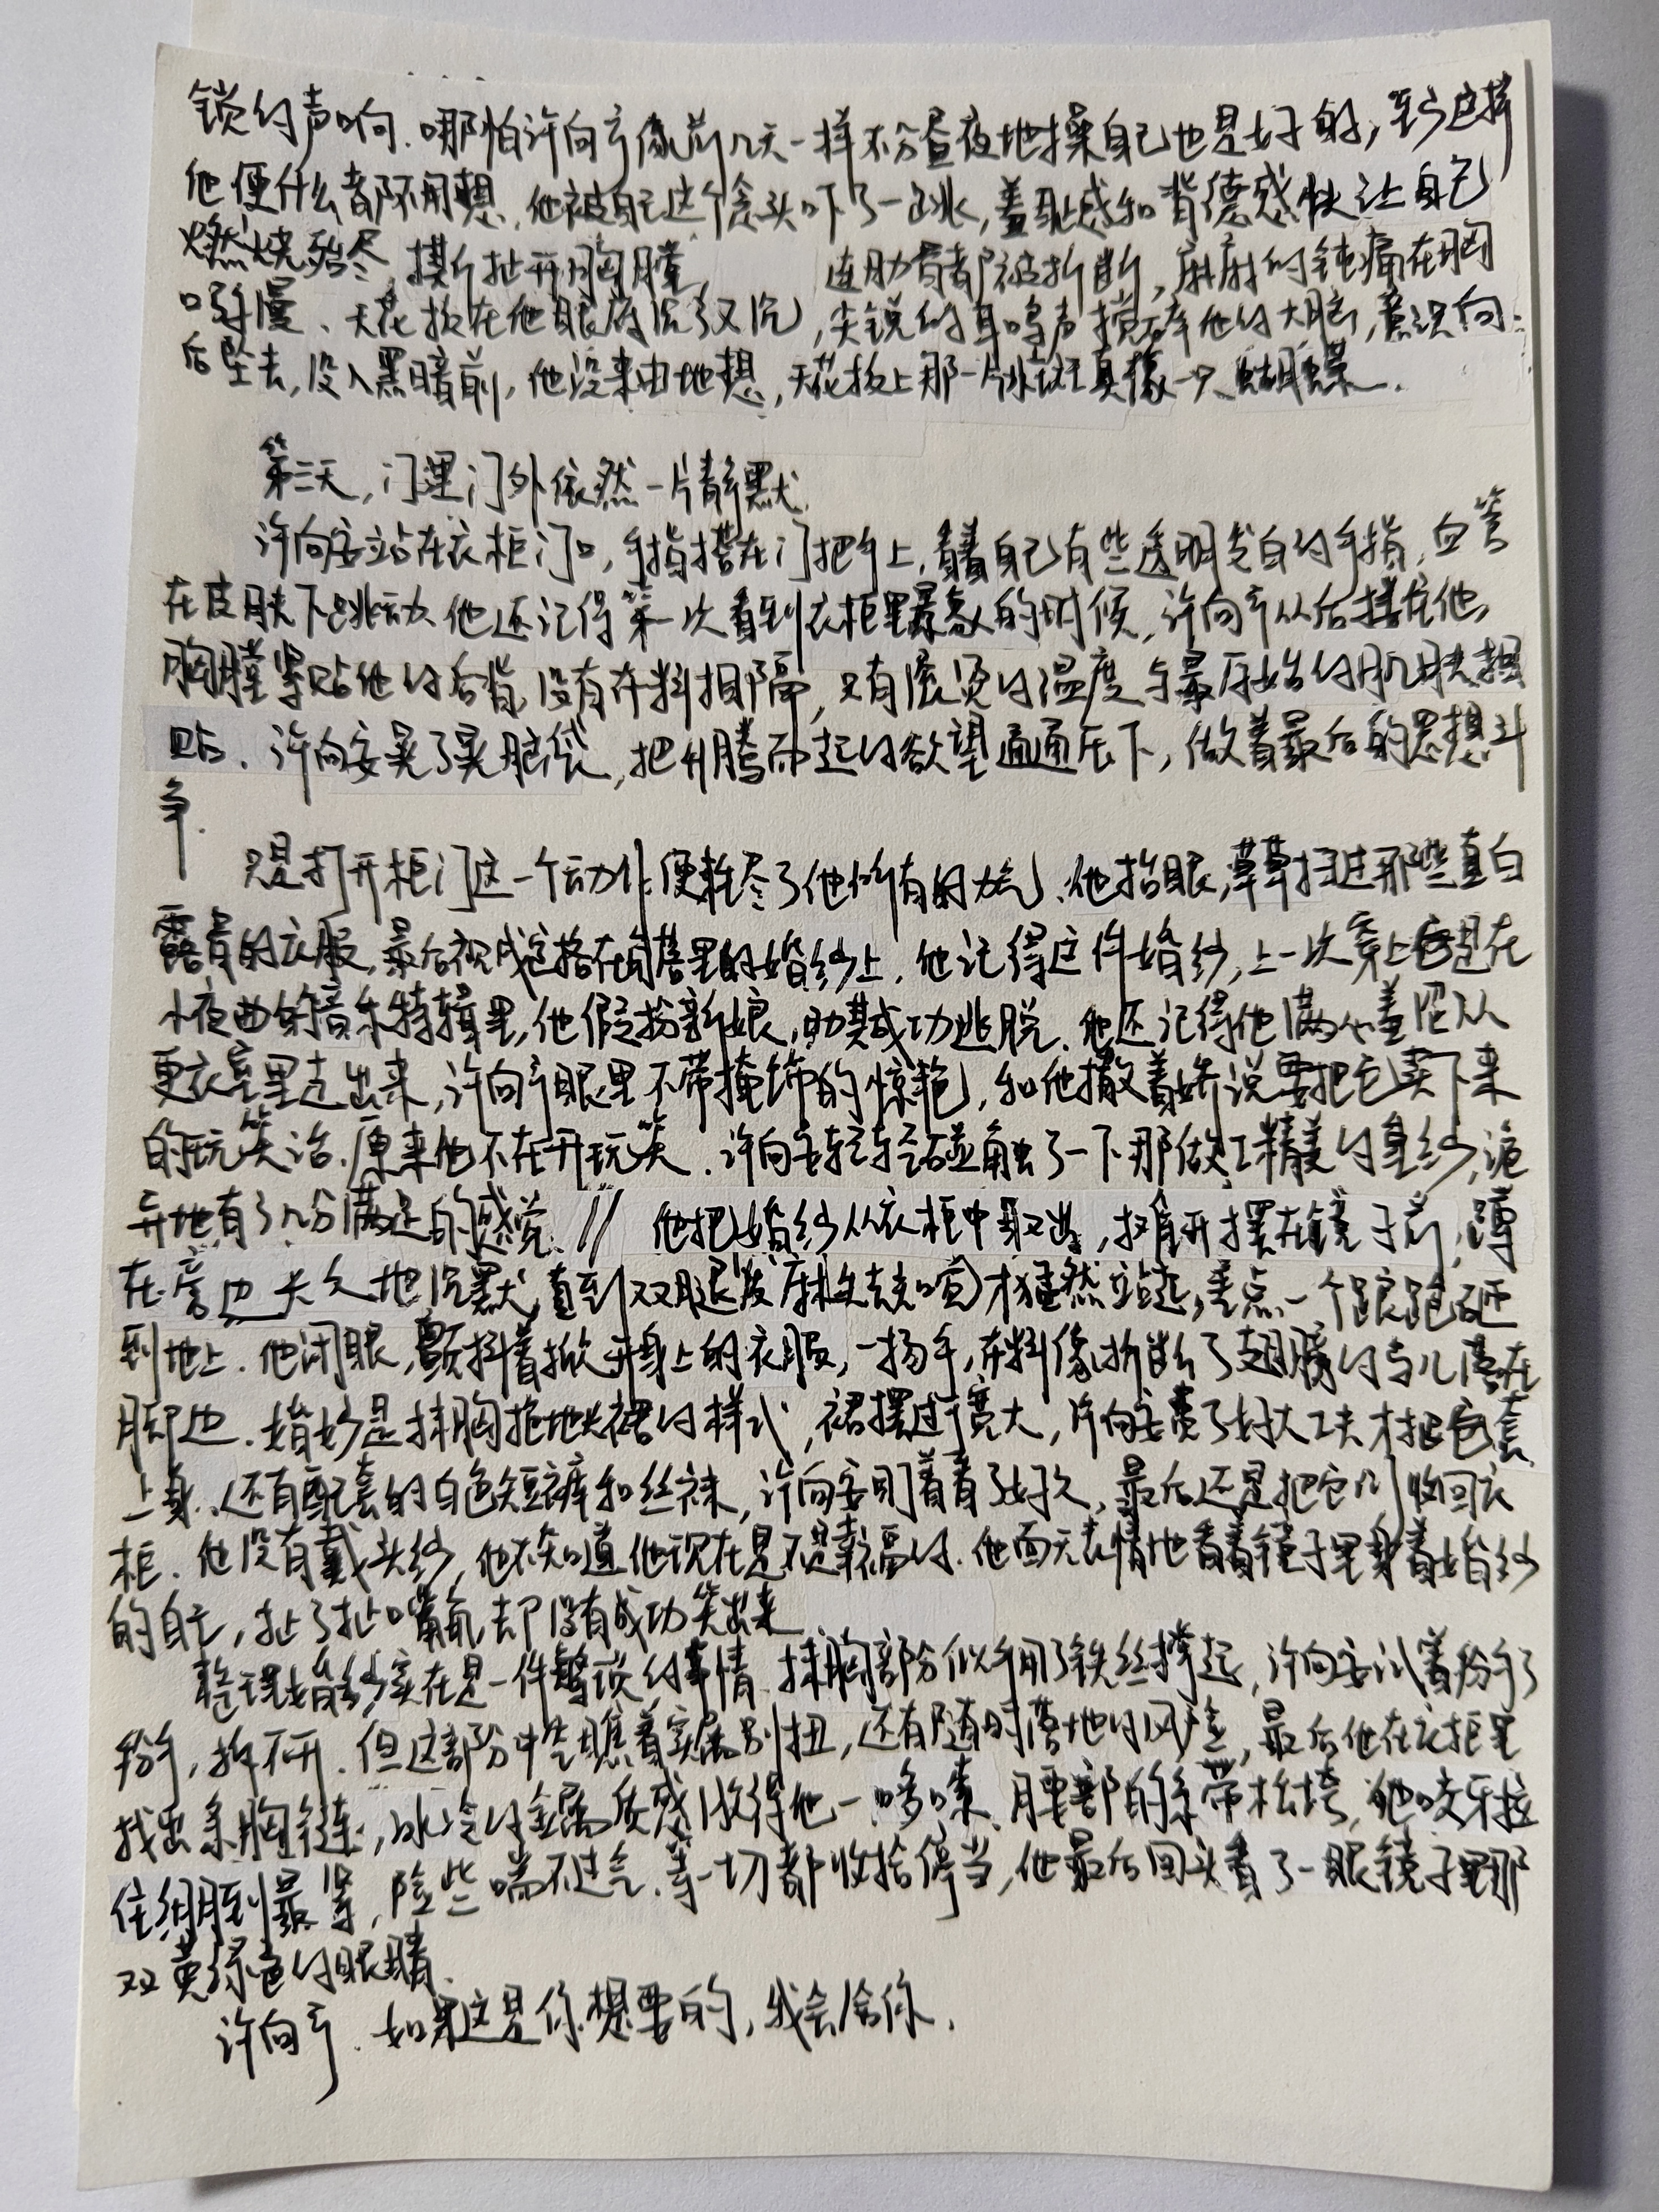 锁的声响。哪怕许向齐像前几天一样不分昼夜地操自己也是好的，至少这样
他便什么都不用想。他被自己这个念头吓了一跳，羞耻感和背德感快让自己
燃烧殆尽，撕扯开胸膛， 连肋骨都被折断，麻麻的钝痛在胸
口弥漫。天花板在他眼底沉了又沉，尖锐的耳鸣声搅碎他的大脑，意识向
后坠去，没入黑暗前，他没来由地想，天花板上那一片水斑真像一只蝴蝶。
第三天，门里门外依然一片静默。
许向安站在衣柜门口，手指搭在门把手上，看着自己有些透明发白的手指，血管
在皮肤下跳动。他还记得第一次看到衣柜里景象的时候，许向齐从后搂住他，
胸膛紧贴他的后背，没有布料相隔，只有滚烫的温度与最原始的肌肤相
贴。许向安晃了晃脑袋，把升腾而起的欲望通通压下，做着最后的思想斗
争。
只是打开柜门这一个动作便耗尽了他所有的力气。他抬眼，草草扫过那些直白
露骨的衣服，最后视线落在角落里的婚纱上。他记得这件婚纱，上一次穿上它是在
小夜曲的音乐特辑里，他假扮新娘，助其成功逃脱。他还记得他满心羞涩从
更衣室里走出来，许向齐眼里不带掩饰的惊艳，和他撒着娇说要把它买下来
的玩笑话。原来他不在开玩笑。许向安轻轻碰触了一下那做工精美的身纱，诡
异地有了几分满足的感觉。// 他把婚纱从衣柜中取出，摊开摆在镜子前，蹲
在旁边长久地沉默，直到双腿发麻失去知觉才猛然站起，差点一个踉跄砸
到地上。他闭眼，颤抖着掀开身上的衣服，一扬手，布料像折断了翅膀的鸟儿落在
脚边。婚纱是抹胸拖地长裙的样式，裙摆过于宽大，许向安费了好大工夫才把它套
上身。还有配套的白色短裤和丝袜，许向安盯着看了好久，最后还是把它们收回衣
柜。他没有戴头纱，他不知道他现在是不是幸福的。他面无表情地看着镜子里身着婚纱
的自己，扯了扯嘴角，却没有成功笑出来。
整理婚纱实在是一件繁琐的事情。抹胸部分似乎用了铁丝撑起，许向安试着掰了
掰，拆不开。但这部分中空瞧着实属别扭，还有随时落地的风险，最后他在衣柜里
找出条胸链，冰冷的金属质感激得他一哆嗦。腰部的系带松垮，他咬牙拉
住绷到最紧，险些喘不过气。等一切都收拾停当，他最后回头看了一眼镜子里那
双黄绿色的眼睛。
许向齐。如果这是你想要的，我会给你。